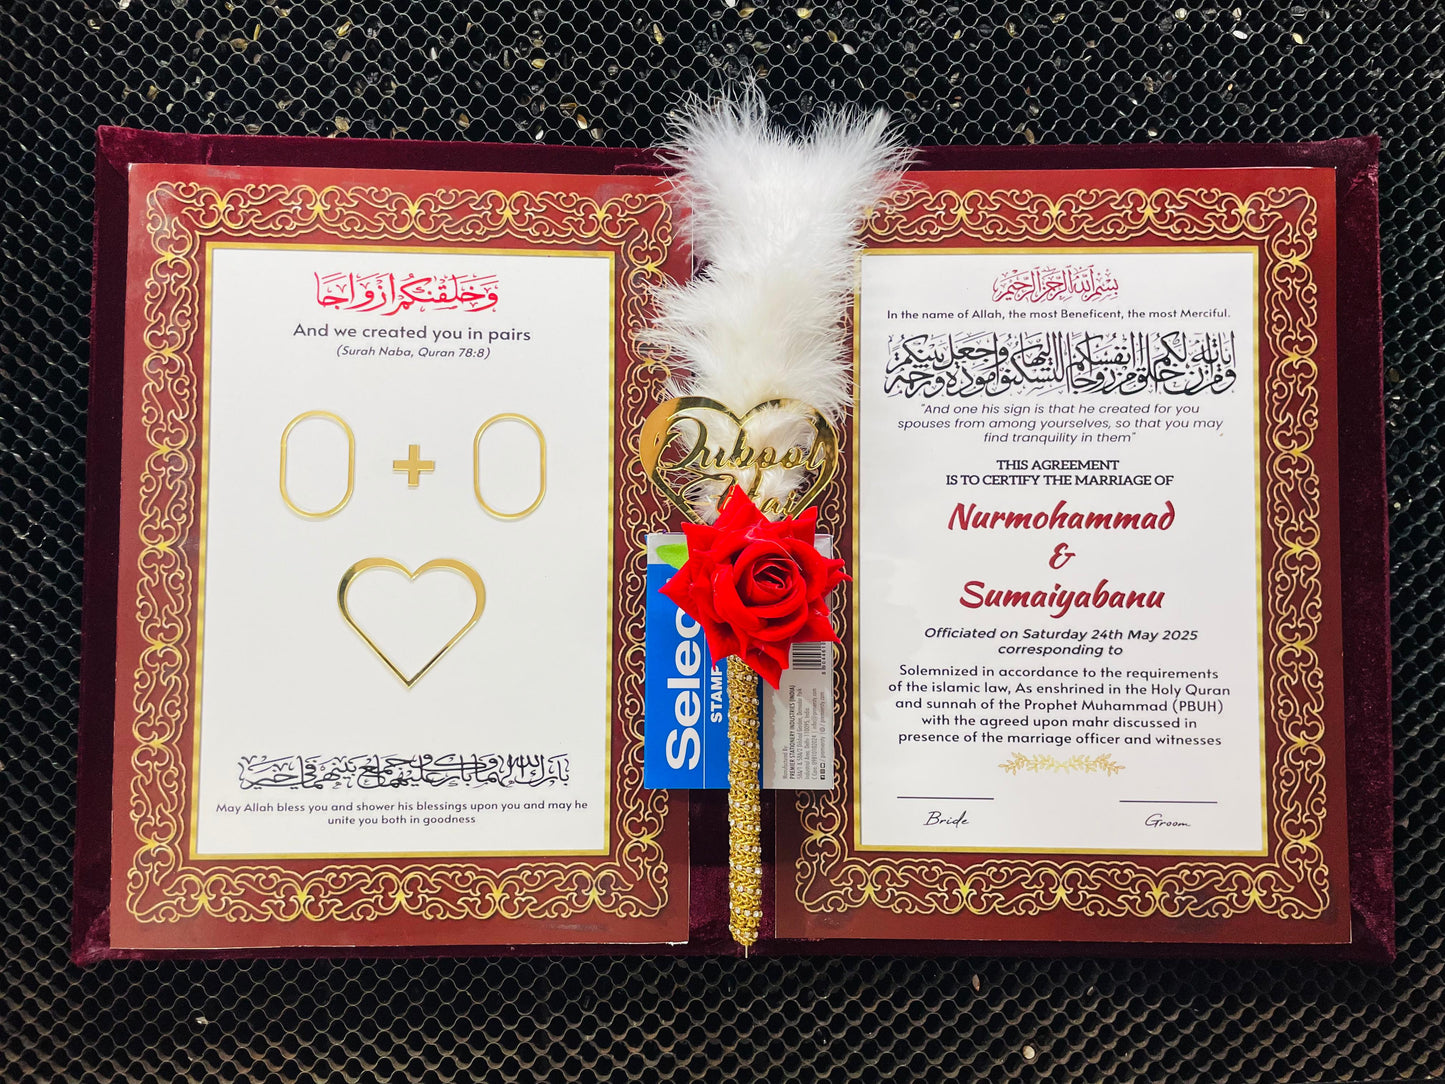 وَخَلَقْنَكُمْ أَزْوَاجًا
And we created you in pairs
(Surah Naba, Quran 78:8)
+
بارك الله لكما وبارك عليكما وجمع بينكما في خير
May Allah bless you and shower his blessings upon you and may he
unite you both in goodness
Qubool
Hai
Selec
STAMP
Manufactured By:
PREMIER STATIONERY INDUSTRIES (INDIA)
بِسْمِ اللهِ الرَّحْمٰنِ الرَّحِيْمِ
In the name of Allah, the most Beneficent, the most Merciful.
ومن آياته أن خلق لكم من أنفسكم أزواجا لتسكنوا إليها وجعل بينكم مودة ورحمة
"And one his sign is that he created for you
spouses from among yourselves, so that you may
find tranquility in them"
THIS AGREEMENT
IS TO CERTIFY THE MARRIAGE OF
Nurmohammad
&
Sumaiyabanu
Officiated on Saturday 24th May 2025
corresponding to
Solemnized in accordance to the requirements
of the islamic law, As enshrined in the Holy Quran
and sunnah of the Prophet Muhammad (PBUH)
with the agreed upon mahr discussed in
presence of the marriage officer and witnesses
Bride
Groom